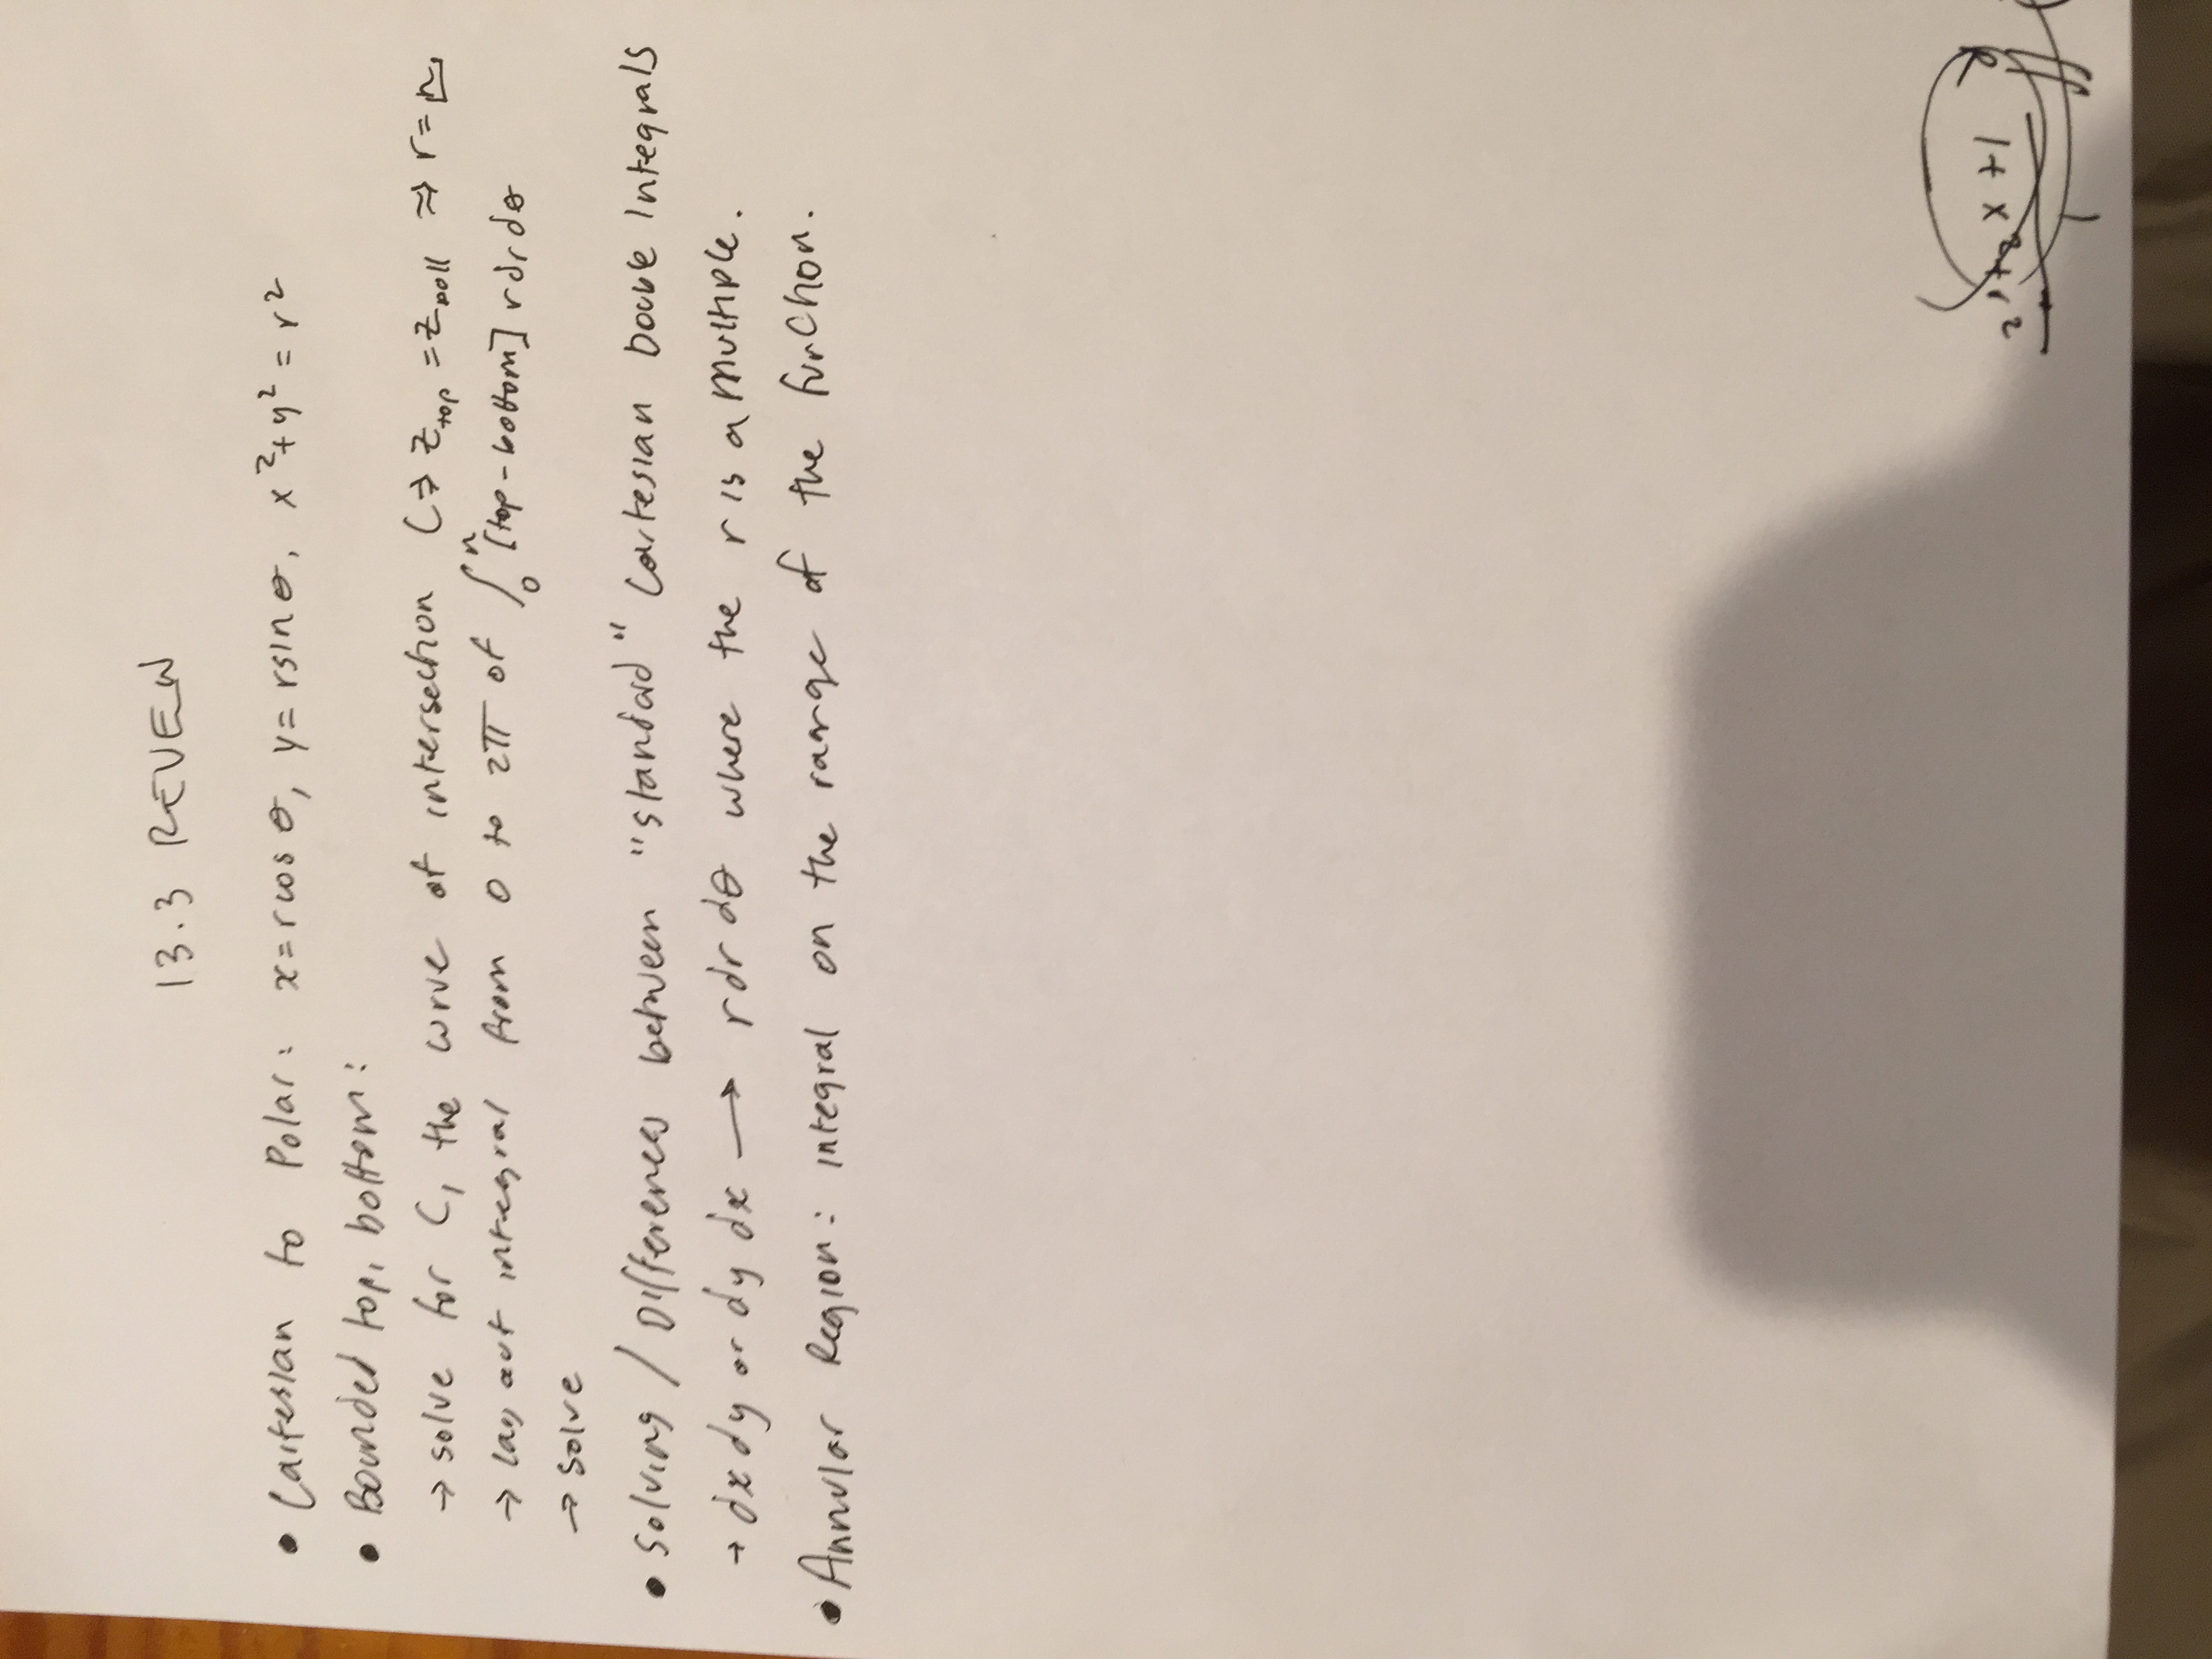 13.3 REVEW
• Cartesian to Polar: x = r cos θ, y = r sin θ, x² + y² = r²
• Bounded top, bottom:
→ solve for C, the curve of intersection C ⇒ z_top = z_ ⇒ r = n
→ lay out integral from 0 to 2π of ∫₀ⁿ [top - bottom] r dr dθ
→ solve
• Solving / Differences between "standard" Cartesian Double Integrals
→ dx dy or dy dx → r dr dθ where the r is a multiple.
• Annular Region: integral on the range of the function.
x + 1